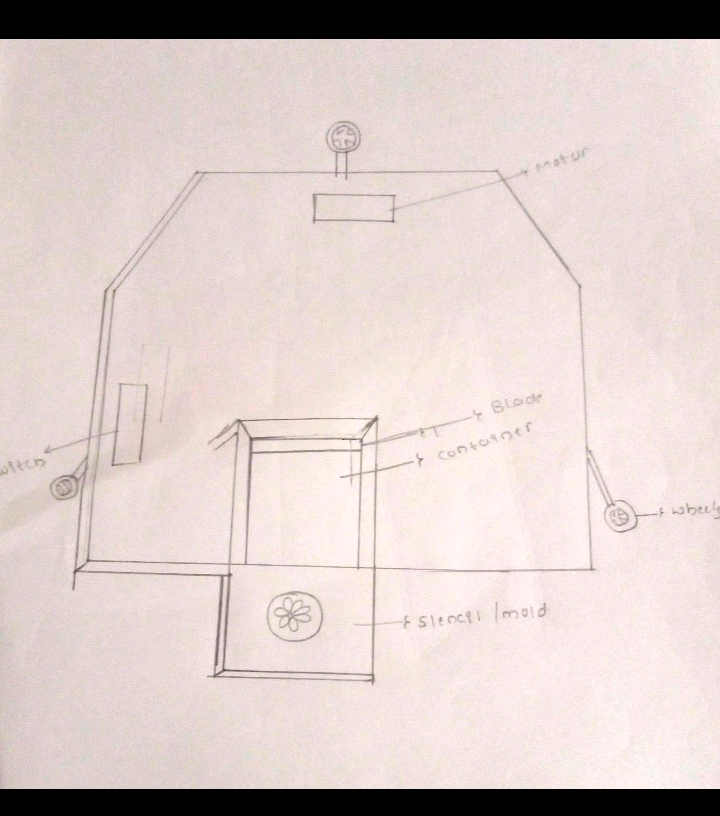 Motor
Blade
container
switch
wheels
stencil / mold